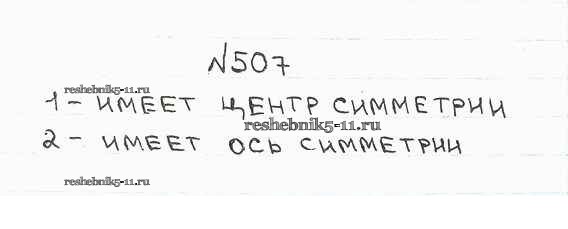 №507
reshebnik5-11.ru
1 - ИМЕЕТ ЦЕНТР СИММЕТРИИ
reshebnik5-11.ru
2 - ИМЕЕТ ОСЬ СИММЕТРИИ
reshebnik5-11.ru